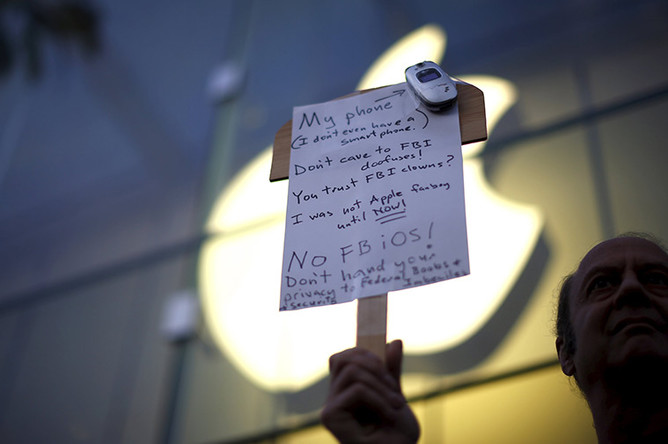 My phone →
(I don't even have a
smartphone.)
Don't cave to FBI
doofuses!
You trust FBI clowns?
I was not Apple fanboy
until NOW!
NO FBiOS!
Don't hand your
privacy to Federal Boobs &
& security Imbeciles